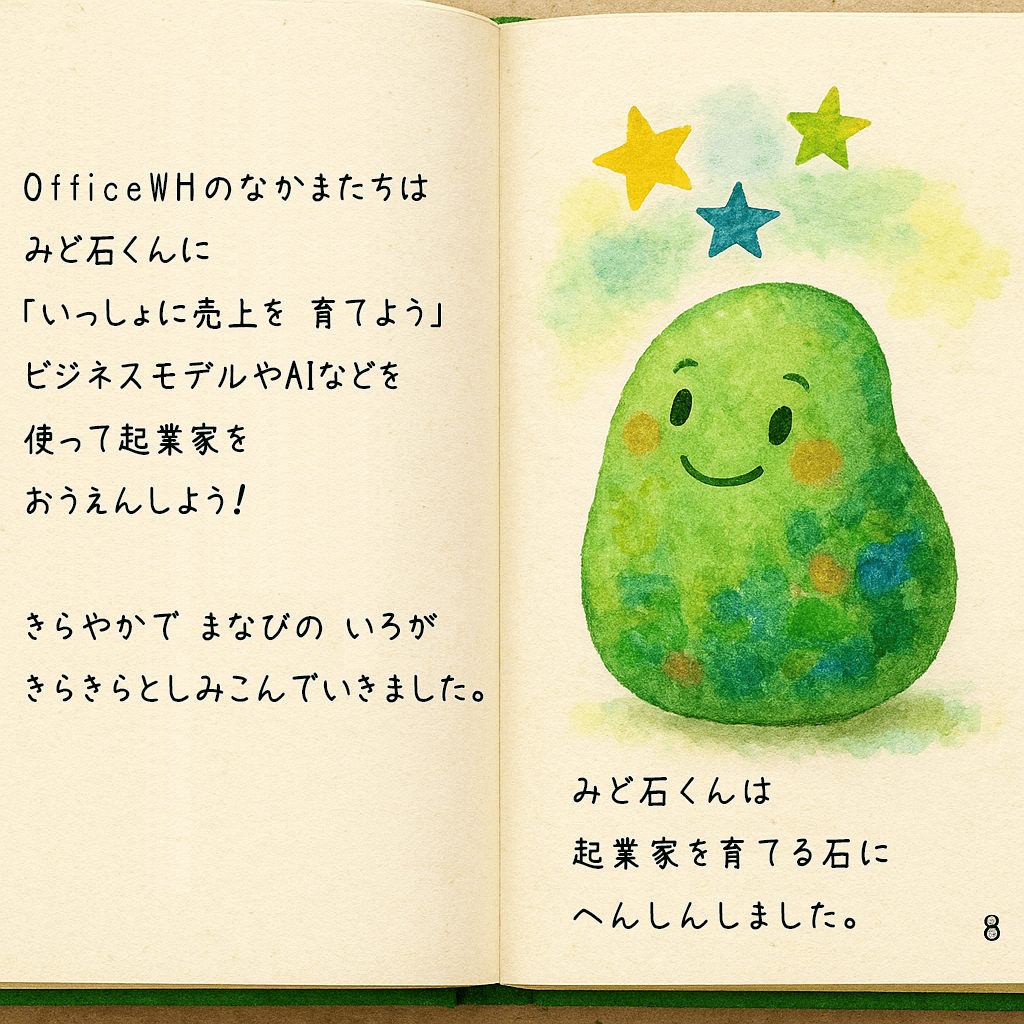 OfficeWHのなかまたちは
みど石くんに
「いっしょに売上を 育てよう」
ビジネスモデルやAIなどを
使って起業家を
おうえんしよう!
きらやかで まなびの いろが
きらきらとしみこんでいきました。
みど石くんは
起業家を育てる石に
へんしんしました。
8